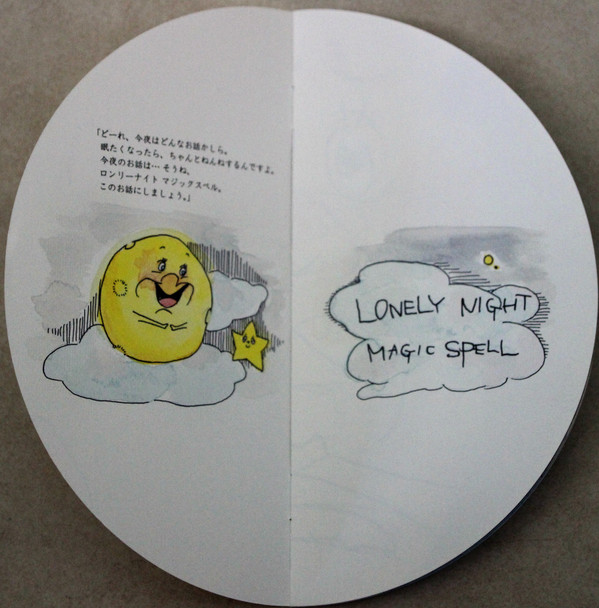 「どーれ、今夜はどんなお話かしら。
眠たくなったら、ちゃんとねんねするんですよ。
今夜のお話は… そうね、
ロンリーナイト マジックスペル。
このお話にしましょう。」
LONELY NIGHT
MAGIC SPELL